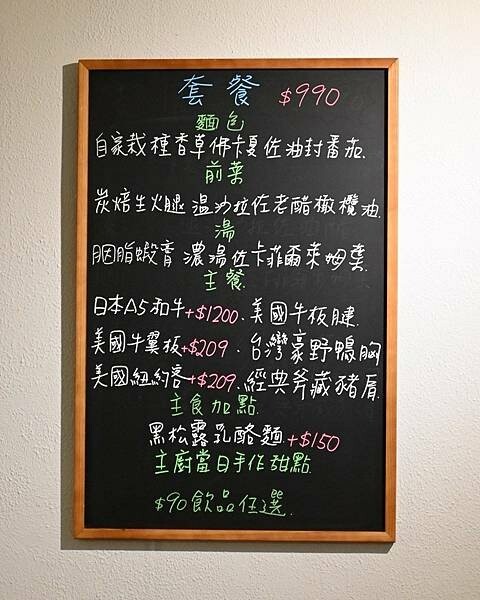 套餐 $990
麵包
自家栽種香草佛卡夏佐油封番茄.
前菜
炭焙生火腿 溫沙拉佐老醋橄欖油.
湯
胭脂蝦膏 濃湯佐卡菲爾萊姆葉.
主餐.
日本A5和牛+$1200、美國牛板腱.
美國牛翼板+$209 . 台灣豪野鴨胸
美國紐約客+$209. 經典斧藏豬肩.
主食加點.
黑松露乳酪麵+$150
主廚當日手作甜點.
$90飲品任選.